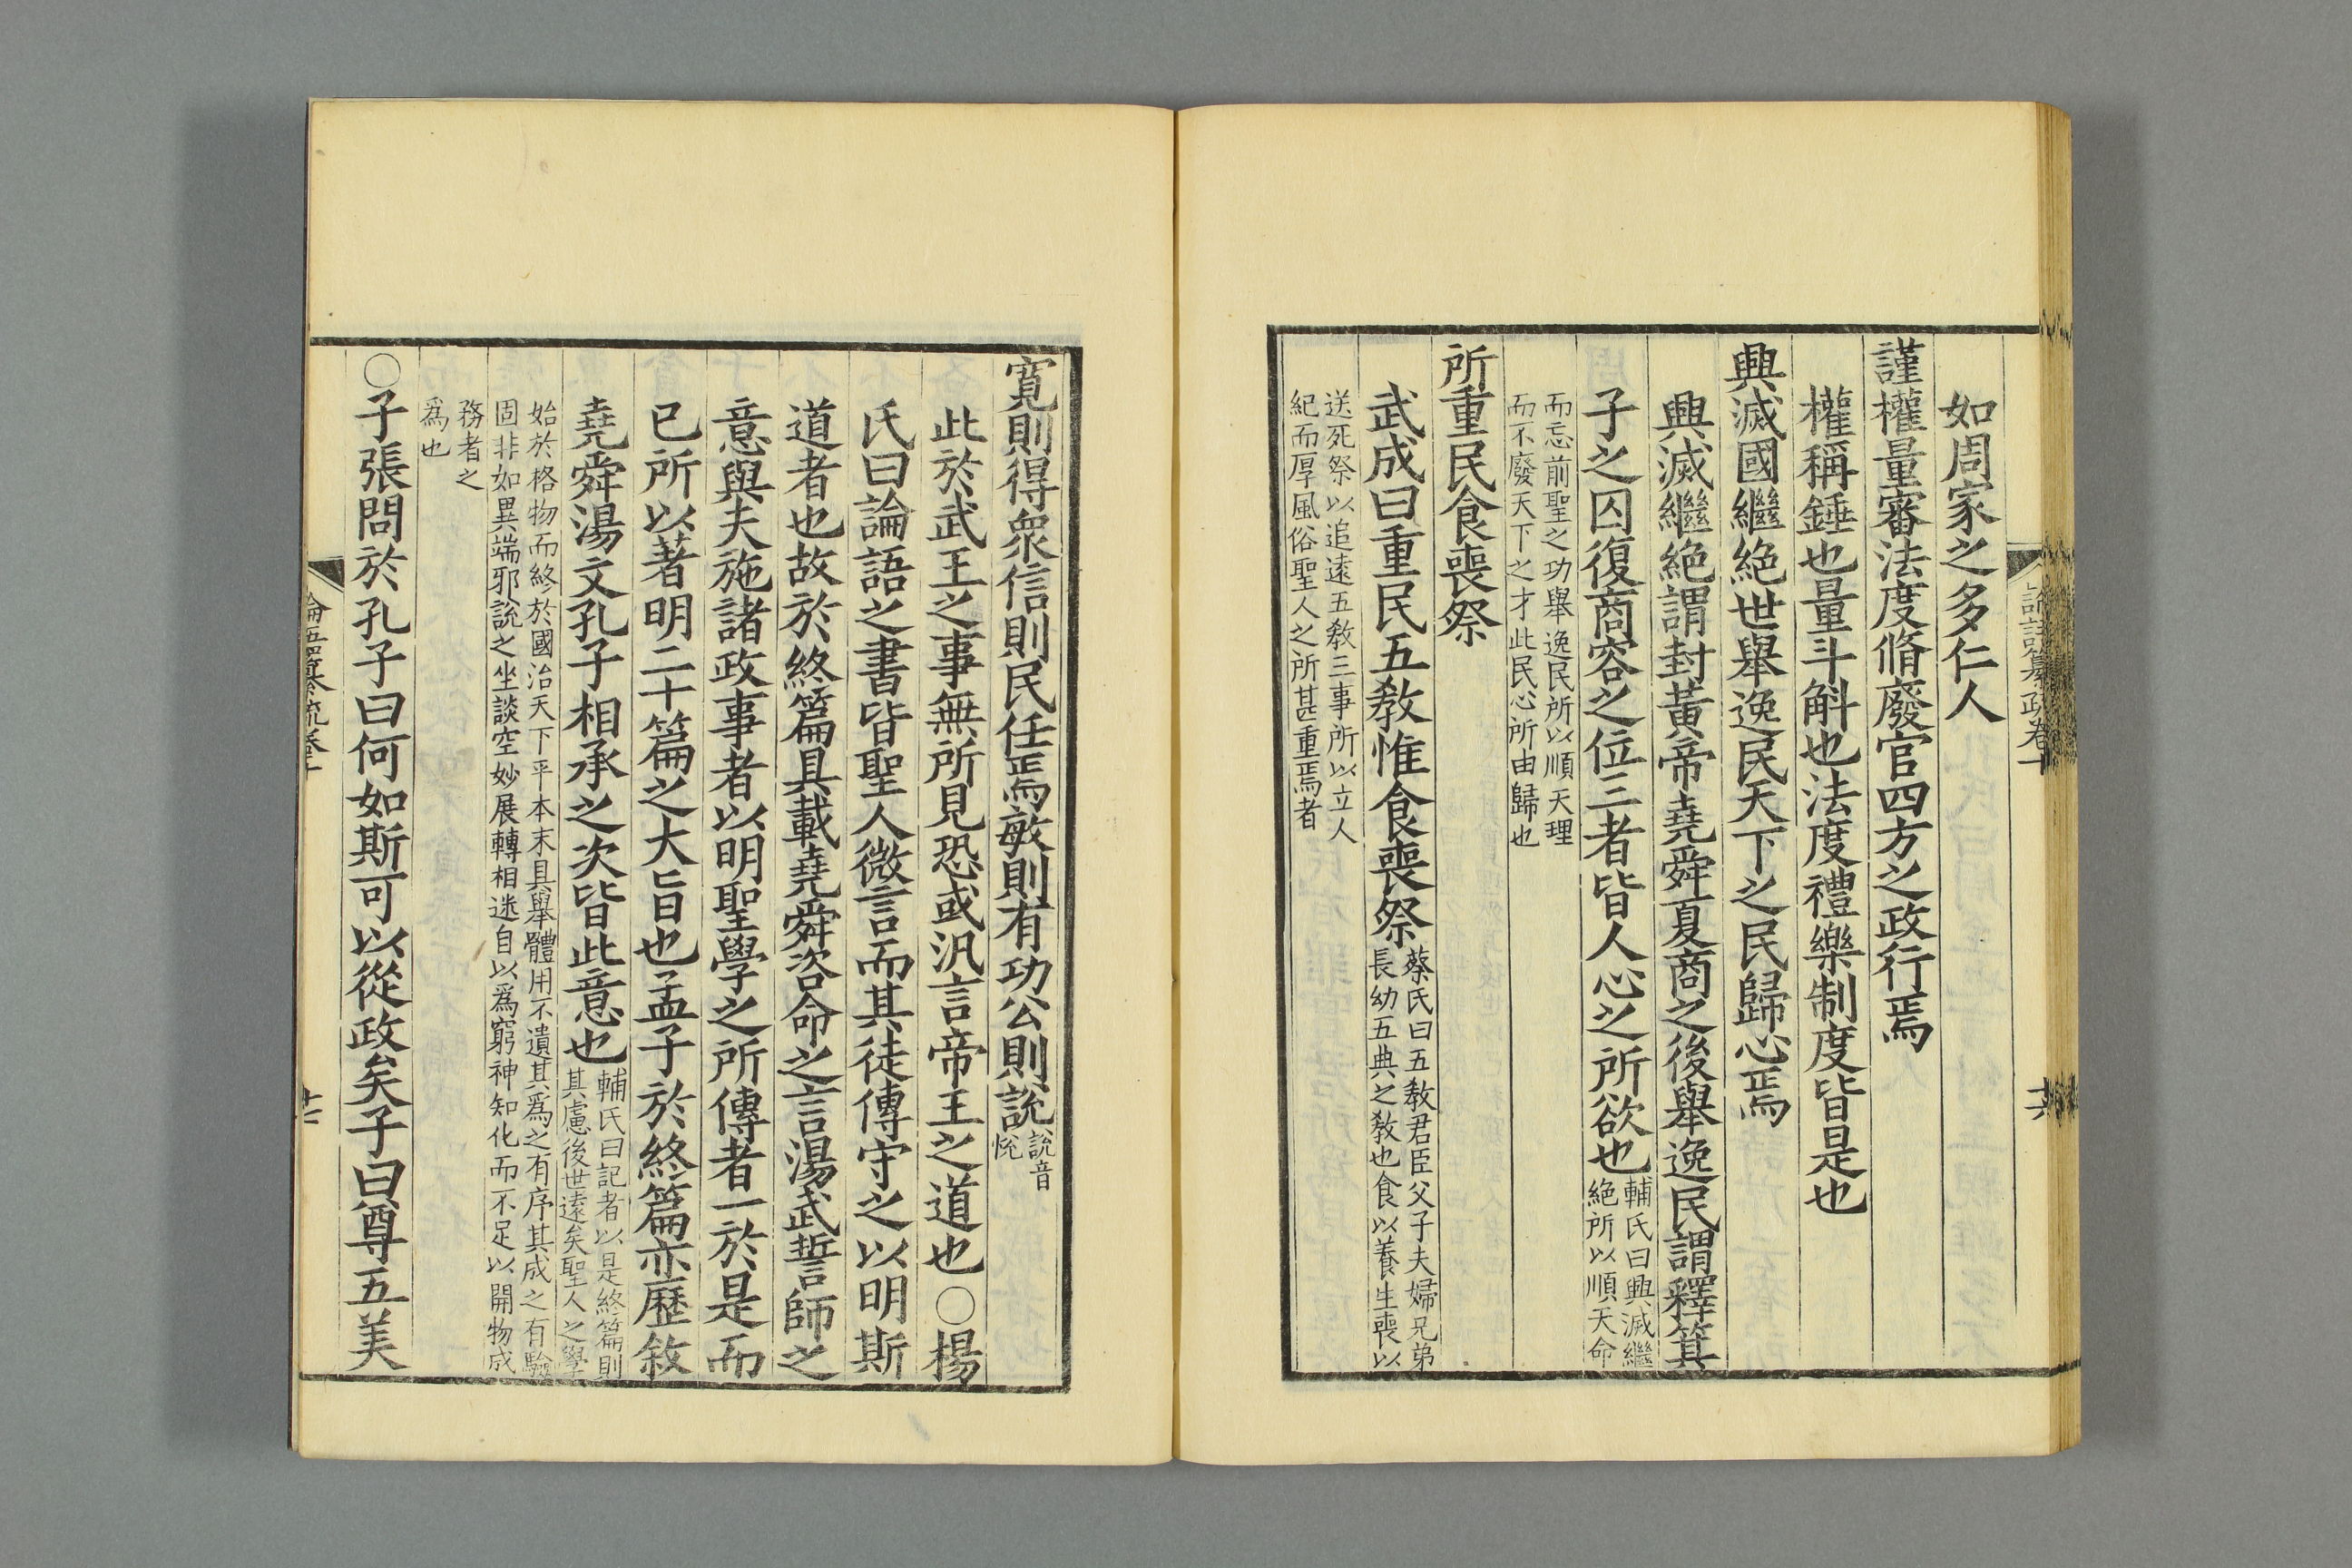 論語纂疏卷十
十六
如周家之多仁人
謹權量審法度脩廢官四方之政行焉
權稱錘也量斗斛也法度禮樂制度皆是也
興滅國繼絶世舉逸民天下之民歸心焉
興滅繼絶謂封黃帝堯舜夏商之後舉逸民謂釋箕
子之囚復商容之位三者皆人心之所欲也
輔氏曰興滅繼
絶所以順天命
而忘前聖之功舉逸民所以順天理
而不廢天下之才此民心所由歸也
所重民食喪祭
武成曰重民五敎惟食喪祭
蔡氏曰五敎君臣父子夫婦兄弟
長幼五典之敎也食以養生喪以
送死祭以追遠五敎三事所以立人
紀而厚風俗聖人之所甚重焉者
寬則得衆信則民任焉敏則有功公則說
說音
悅
此於武王之事無所見恐或汎言帝王之道也○楊
氏曰論語之書皆聖人微言而其徒傳守之以明斯
道者也故於終篇具載堯舜咨命之言湯武誓師之
意與夫施諸政事者以明聖學之所傳者一於是而
已所以著明二十篇之大旨也孟子於終篇亦歷敘
堯舜湯文孔子相承之次皆此意也
輔氏曰記者以是終篇則
其慮後世遠矣聖人之學
始於格物而終於國治天下平本末具舉體用不遺其爲之有序其成之有驗
固非如異端邪說之坐談空妙展轉相迷自以爲窮神知化而不足以開物成
務者之
爲也
○子張問於孔子曰何如斯可以從政矣子曰尊五美
論語纂疏卷十